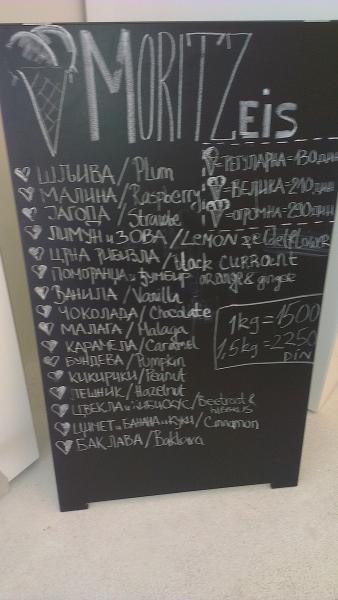 MORITZ
EIS
ШЉИВА/Plum
МАЛИНА/Raspberry
ЈАГОДА/
ЛИМУН И ЗОВА/LEMON
ЦРНА РИБИЗЛА/BLACK CURRANT
ПОМОРАНЏА И ЂУМБИР ORANGE & ginger
ВАНИЛА/Vanilla
ЧОКОЛАДА/Chocolate
МАЛАГА/Malaga
КАРАМЕЛА/Caramel
БУНДЕВА/Pumpkin
КИКИРИКИ/Peanut
ЛЕШНИК/Hazelnut
ЦВЕКЛА И ХИБИСКУС/Beetroot & HIBISKUS
ЦИМЕТ и БАНАНА и КУКИ/Cinnamon
БАКЛАВА/Baklava
=РЕГУЛАРНА=130 ДИН
=ВЕЛИКА=210 ДИН
=ОГРОМНА=290 ДИН
1kg=1500
1,5kg=2250
DIN